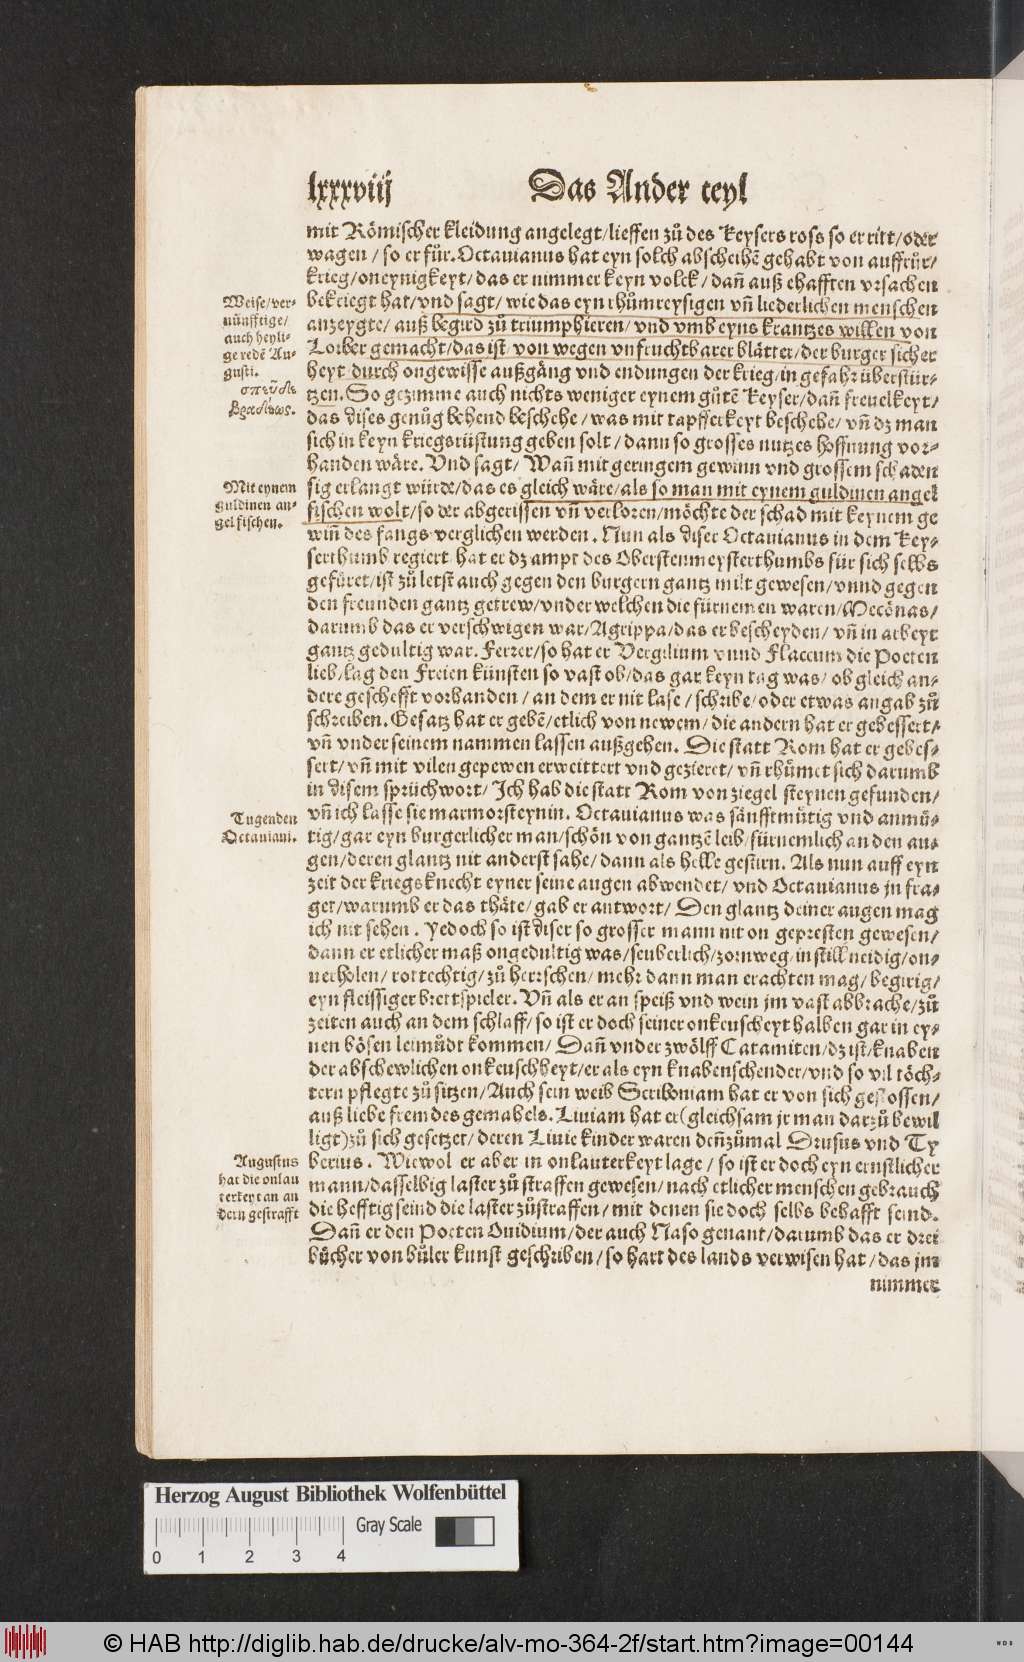 lxxxviij Das Ander teyl
mit Römischer kleidung angelegt/lieffen zů des Keysers ross so er ritt/oder
wagen/so er für. Octauianus hat eyn solch abscheihẽ gehabt von auffrůr/
krieg/oneynigkeyt/das er nimmer keyn volck/dañ auß ehafften vrsachen
bekriegt hat/vnd sagt/wie das eyn rhůmreysigen vñ liederlichen menschen
anzeygte/auß begird zů triumphieren/vnd vmb eyns krantzes willen von
Lorber gemacht/das ist/von wegen vnfruchtbarer blätter/der burger sicher
heyt/durch ongewisse außgäng vnd endungen der krieg/in gefahr überstür-
tzen. So gezimme auch nichts weniger eynem gůtẽ Keyser/dañ freuelkeyt/
das dises genůg behend beschehe/was mit tapfferkeyt beschehe/vñ dz man
sich in keyn kriegsrüstung geben solt/dann so grosses nutzes hoffnung vor-
handen wäre. Vnd sagt/Wañ mit geringem gewinn vnd grossem schaden
sig erlangt würde/das es gleich wäre/als so man mit eynem guldinen angel
fischen wolt/so der abgerissen vñ verloren/möchte der schad mit keynem ge
wiñ des fangs verglichen werden. Nun als diser Octauianus in dem Key-
serthumb regiert/hat er dz ampt des Oberstenmeysterthumbs für sich selbs
gefüret/ist zů letst auch gegen den burgern gantz milt gewesen/vnnd gegen
den freunden gantz getrew/vnder welchen die fürnemen waren/Mecönas/
darumb das er verschwigen war/Agrippa/das er bescheyden/vñ in arbeyt
gantz gedultig war. Ferrer/so hat er Vergilium vnnd Flaccum die Poeten
lieb/lag den Freien künsten so vast ob/das gar keyn tag was/ob gleich an-
dere geschefft vorhanden/an dem er nit lase/schribe/oder etwas angab zů
schreiben. Gesatz hat er gebẽ/etlich von newem/die andern hat er gebessert/
vñ vnder seinem nammen lassen außgehen. Die statt Rom hat er gebes-
sert/vñ mit vilen gepewen erweittert vnd gezieret/vñ rhůmet sich darumb
in disem sprüchwort/Ich hab die statt Rom von ziegel steynen gefunden/
vñ ich lasse sie marmorsteynin. Octauianus was sänfftmütig vnd anmü-
tig/gar eyn burgerlicher man/schön von gantzẽ leib/fürnemlich an den au-
gen/deren glantz nit anderst sahe/dann als helle gestirn. Als nun auff eyn
zeit der kriegsknecht eyner seine augen abwendet/vnd Octauianus jn fra-
get/warumb er das thäte/gab er antwort/Den glantz deiner augen mag
ich nit sehen. Yedoch so ist diser so grosser mann nit on gepresten gewesen/
dann er etlicher maß ongedultig was/seuberlich/zornweg/in still neidig/on-
uerholen/rottechtig/zů herrschen/mehr dann man erachten mag/begirig/
eyn fleissiger brettspieler. Vñ als er an speiß vnd wein jm vast abbrache/zů
zeiten auch an dem schlaff/so ist er doch seiner onkeuscheyt halben gar in ey-
nen bösen leimůdt kommen/Dañ vnder zwölff Catamiten/dz ist/knaben
der abschewlichen onkeuschheyt/er als eyn knabenschender/vnd so vil töch-
tern pflegte zů sitzen/Auch sein weib Scriboniam hat er von sich gestossen/
auß liebe frembdes gemahels. Liuiam hat er (gleichsam jr man darzů bewil
ligt) zů sich gesetzet/deren Liuie kinder waren deñzůmal Drusus vnd Ty
berius. Wiewol er aber in onlauterkeyt lage/so ist er doch eyn ernstlicher
mann/dasselbig laster zů straffen gewesen/nach etlicher menschen gebrauch
die hefftig seind die laster zůstraffen/mit denen sie doch selbs behafft seind.
Dañ er den Poeten Ouidium/der auch Naso genant/darumb das er drei
bücher von bůler kunst geschriben/so hart des lands verwisen hat/das jm
nimmer
Weise/ver-
nünfftige/
auch heyli-
ge redẽ Au-
gusti.
σπεῦδε
βραδέως.
Mit eynem
guldinen an-
gel fischen.
Tugenden
Octauiani.
Augustus
hat die onlau
terkeyt an an
dern gestrafft
Herzog August Bibliothek Wolfenbüttel
Gray Scale
0 1 2 3 4
© HAB http://diglib.hab.de/drucke/alv-mo-364-2f/start.htm?image=00144